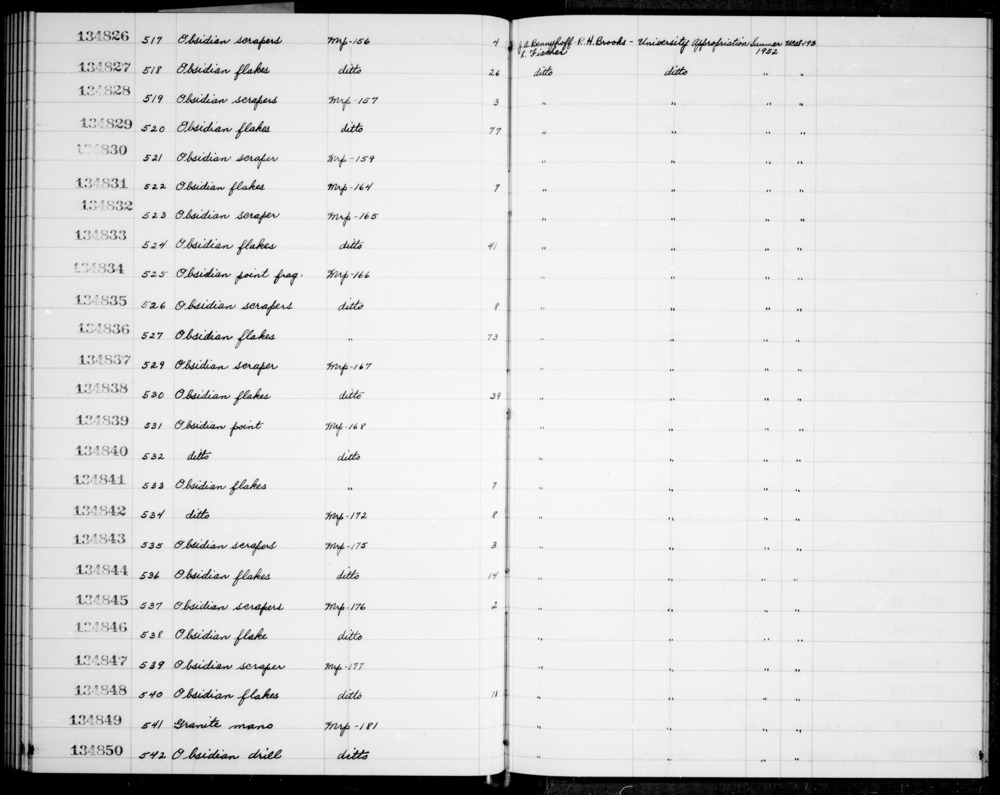 134826 517 Obsidian scrapers Mrp-156 4 J.A. Bennyhoff - R.H. Brooks - University Appropriation Summer UCAS-193
L. Fischer 1952
134827 518 Obsidian flakes ditto 26 ditto ditto " "
134828 519 Obsidian scrapers Mrp-157 3 " " " "
134829 520 Obsidian flakes ditto 77 " " " "
134830 521 Obsidian scraper Mrp-159 " " " "
134831 522 Obsidian flakes Mrp-164 7 " " " "
134832 523 Obsidian scraper Mrp-165 " " " "
134833 524 Obsidian flakes ditto 41 " " " "
134834 525 Obsidian point frag. Mrp-166 " " " "
134835 526 Obsidian scrapers ditto 8 " " " "
134836 527 Obsidian flakes " 73 " " " "
134837 529 Obsidian scraper Mrp-167 " " " "
134838 530 Obsidian flakes ditto 39 " " " "
134839 531 Obsidian point Mrp-168 " " " "
134840 532 ditto ditto " " " "
134841 533 Obsidian flakes " 7 " " " "
134842 534 ditto Mrp-172 8 " " " "
134843 535 Obsidian scrapers Mrp-175 3 " " " "
134844 536 Obsidian flakes ditto 14 " " " "
134845 537 Obsidian scrapers Mrp-176 2 " " " "
134846 538 Obsidian flake ditto " " " "
134847 539 Obsidian scraper Mrp-177 " " " "
134848 540 Obsidian flakes ditto 11 " " " "
134849 541 Granite mano Mrp-181 " " " "
134850 542 Obsidian drill ditto " " " "